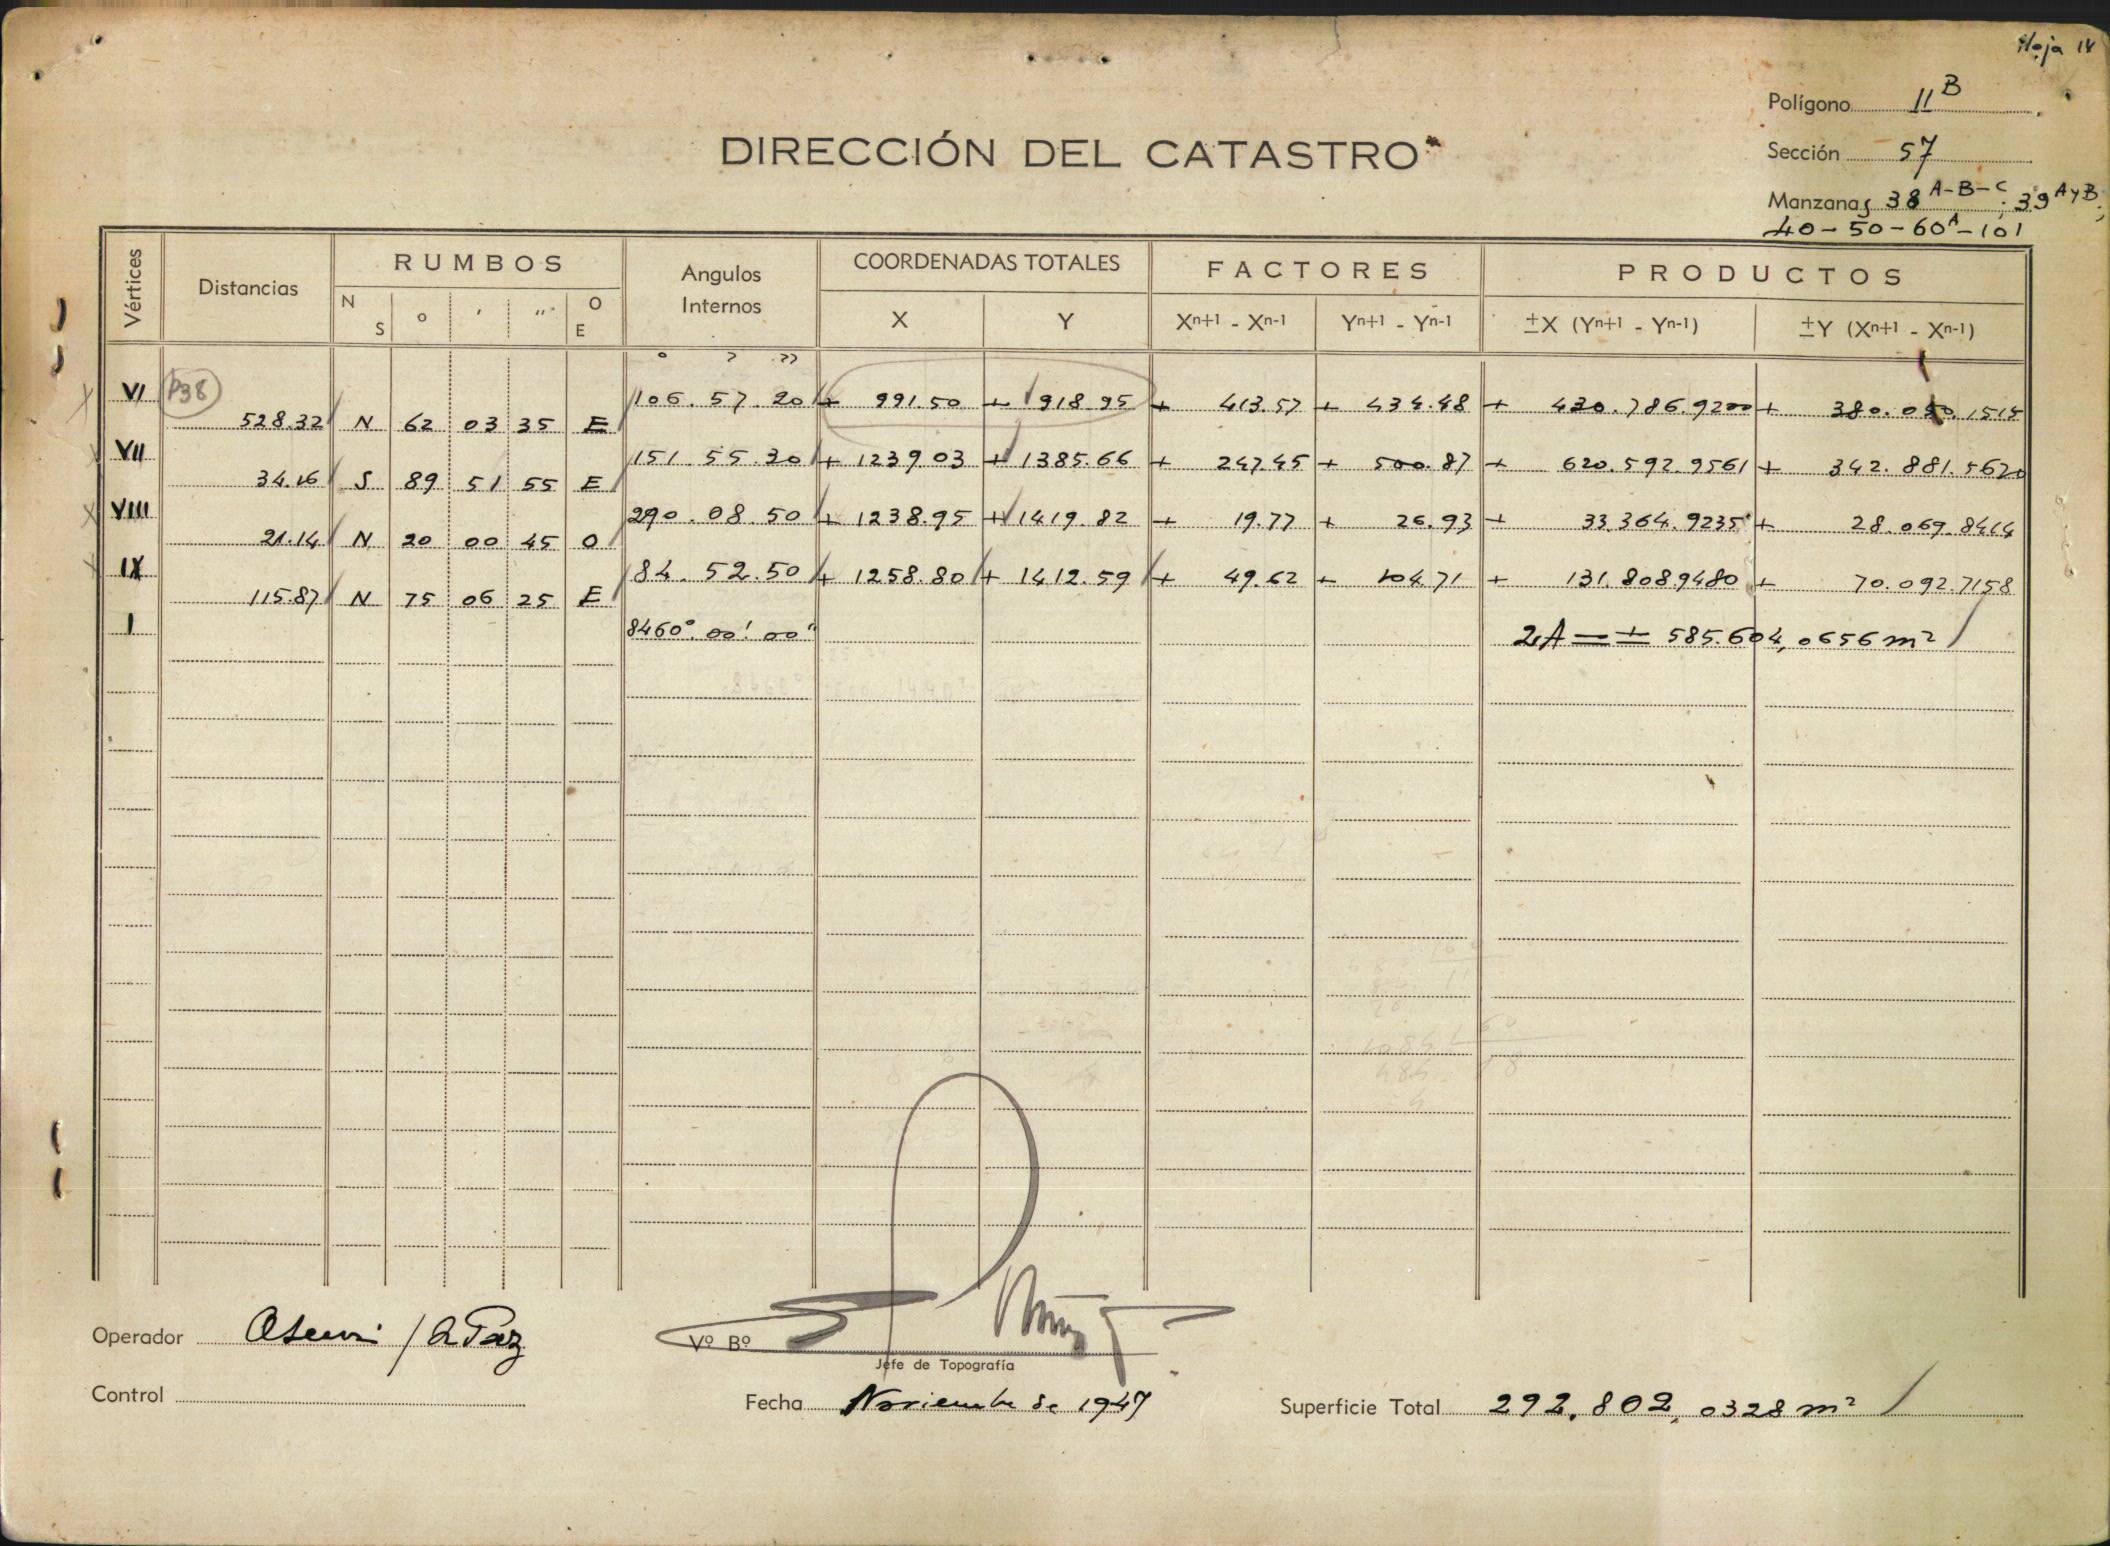 Hoja IV
Polígono 11 B
Sección 57
Manzanas 38 A-B-C; 39 A y B;
40-50-60 A-101
DIRECCIÓN DEL CATASTRO
Vértices Distancias RUMBOS Angulos Internos COORDENADAS TOTALES FACTORES PRODUCTOS
N S o ' " O E X Y Xn+1 - Xn-1 Yn+1 - Yn-1 ±X (Yn+1 - Yn-1) ±Y (Xn+1 - Xn-1)
VI P38 106. 57. 20 + 991.50 + 918.95 + 413.57 + 434.48 + 430.786.9200 + 380.050.1515
528.32 N 62 03 35 E
VII 151 55.30 + 1239 03 + 1385.66 + 247.45 + 500.87 + 620.592.9561 + 342.881.5670
34.16 S 89 51 55 E
VIII 290.08.50 + 1238.95 + 1419.82 + 19.77 + 26.93 + 33.364.9235 + 28.069.8414
21.14 N 20 00 45 O
IX 84. 52.50 + 1258.80 + 1412.59 + 49.62 + 104.71 + 131.8089480 + 70.092.7158
115.87 N 75 06 25 E
I 8460°.00'.00" 2A = ± 585.604,0656 m²
Operador / de Paz
Vº Bº
Jefe de Topografía
Control
Fecha Noviembre de 1947
Superficie Total 292.802,0328 m²